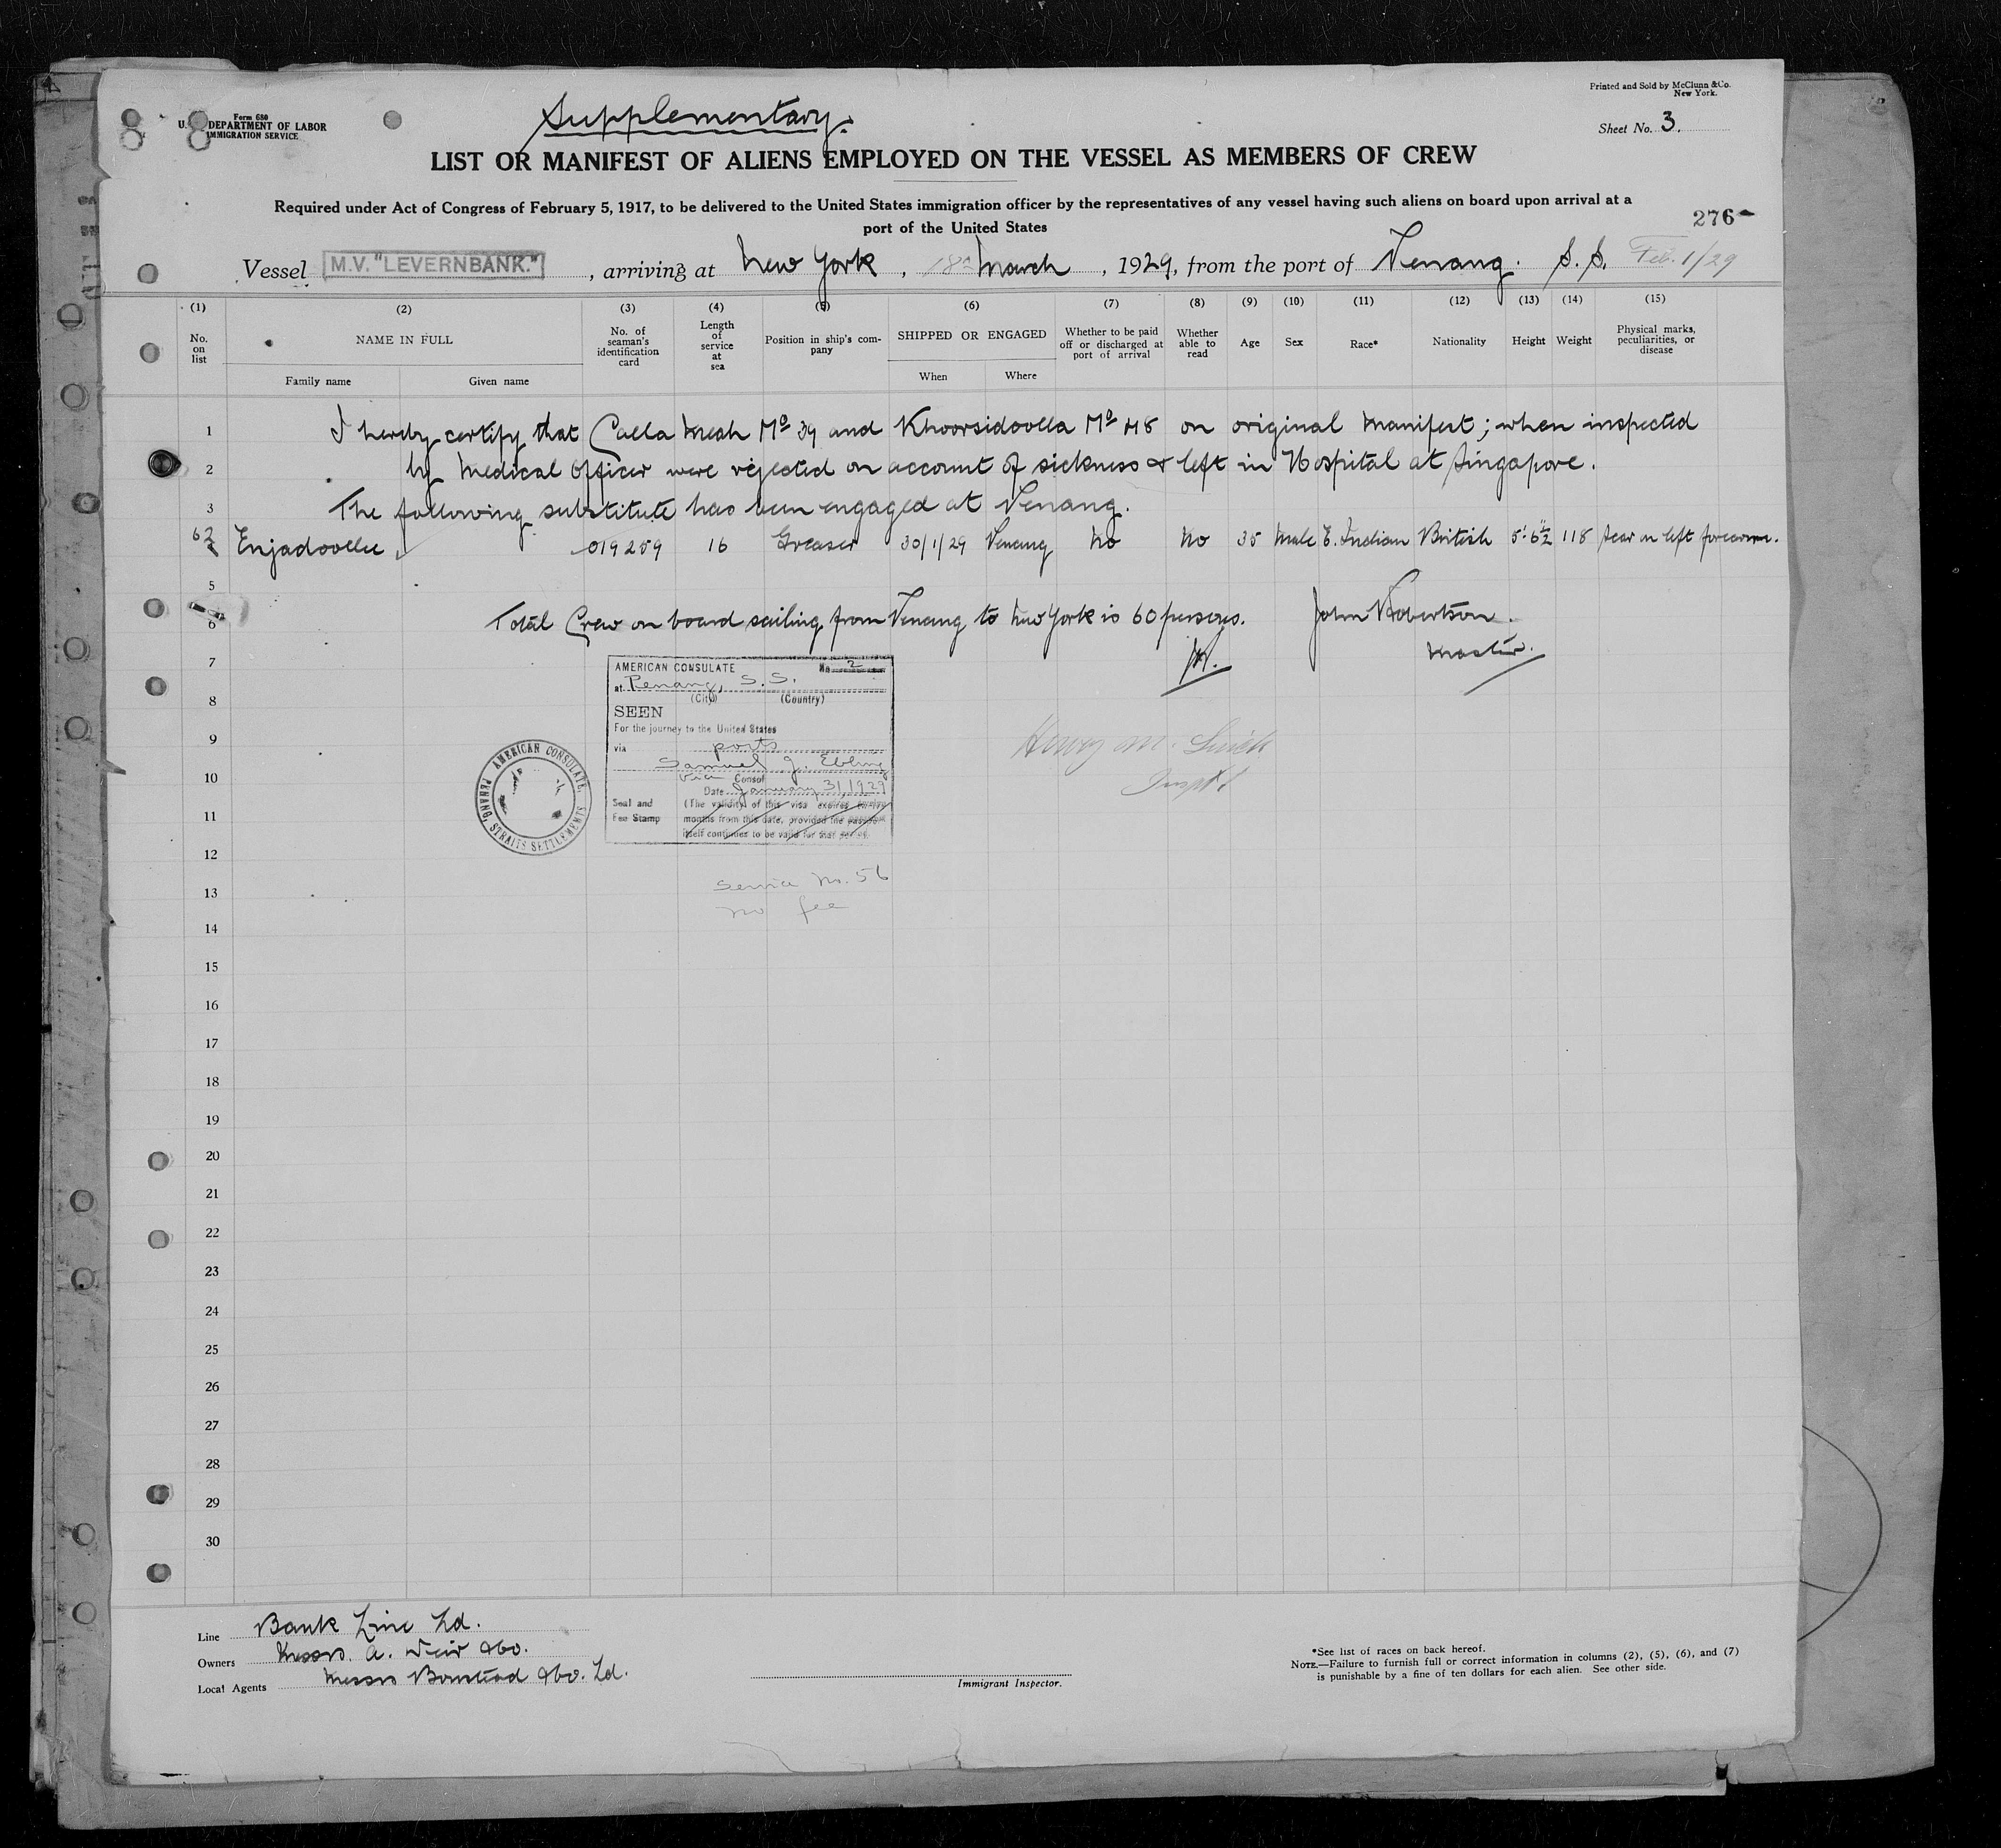 Form 680
U. S. DEPARTMENT OF LABOR
IMMIGRATION SERVICE
Supplementary.
Printed and Sold by McClunn & Co.
New York.
Sheet No. 3.
LIST OR MANIFEST OF ALIENS EMPLOYED ON THE VESSEL AS MEMBERS OF CREW
Required under Act of Congress of February 5, 1917, to be delivered to the United States immigration officer by the representatives of any vessel having such aliens on board upon arrival at a
port of the United States
276
Vessel M.V. "LEVERNBANK." , arriving at New York , 18th March , 1929, from the port of Penang. S.S. Feb. 1/29
(1) (2) (3) (4) (5) (6) (7) (8) (9) (10) (11) (12) (13) (14) (15)
No. on list
NAME IN FULL
Family name Given name
No. of seaman's identification card
Length of service at sea
Position in ship's company
SHIPPED OR ENGAGED
When Where
Whether to be paid off or discharged at port of arrival
Whether able to read
Age
Sex
Race*
Nationality
Height
Weight
Physical marks, peculiarities, or disease
1 I hereby certify that Calla Meah No 39 and Khoorsidoolla No 48 on original Manifest; when inspected
2 by Medical Officer were rejected on account of sickness & left in Hospital at Singapore.
3 The following substitute has been engaged at Penang.
62 Enjadoollee 019259 16 Greaser 30/1/29 Penang No No 35 Male E. Indian British 5' 6½" 118 Scar on left forearm.
5
6 Total Crew on board sailing from Penang to New York is 60 persons. John Robertson.
JR. Master.
7
8
9
10
11
12
13
14
15
16
17
18
19
20
21
22
23
24
25
26
27
28
29
30
AMERICAN CONSULATE No. 2
at Penang, S.S.
(City) (Country)
SEEN
For the journey to the United States
via ports
Samuel J. Ebling
Vice Consul
Date January 31, 1929
Seal and Fee Stamp
(The validity of this visa expires twelve
months from this date, provided the passport
itself continues to be valid for that period.
AMERICAN CONSULATE, PENANG, STRAITS SETTLEMENTS
Service No. 56
no fee
Inspt
Line Bank Line Ld.
Owners Messrs. A. Weir & Co.
Local Agents Messrs Boustead & Co. Ld.
Immigrant Inspector.
*See list of races on back hereof.
NOTE.—Failure to furnish full or correct information in columns (2), (5), (6), and (7)
is punishable by a fine of ten dollars for each alien. See other side.